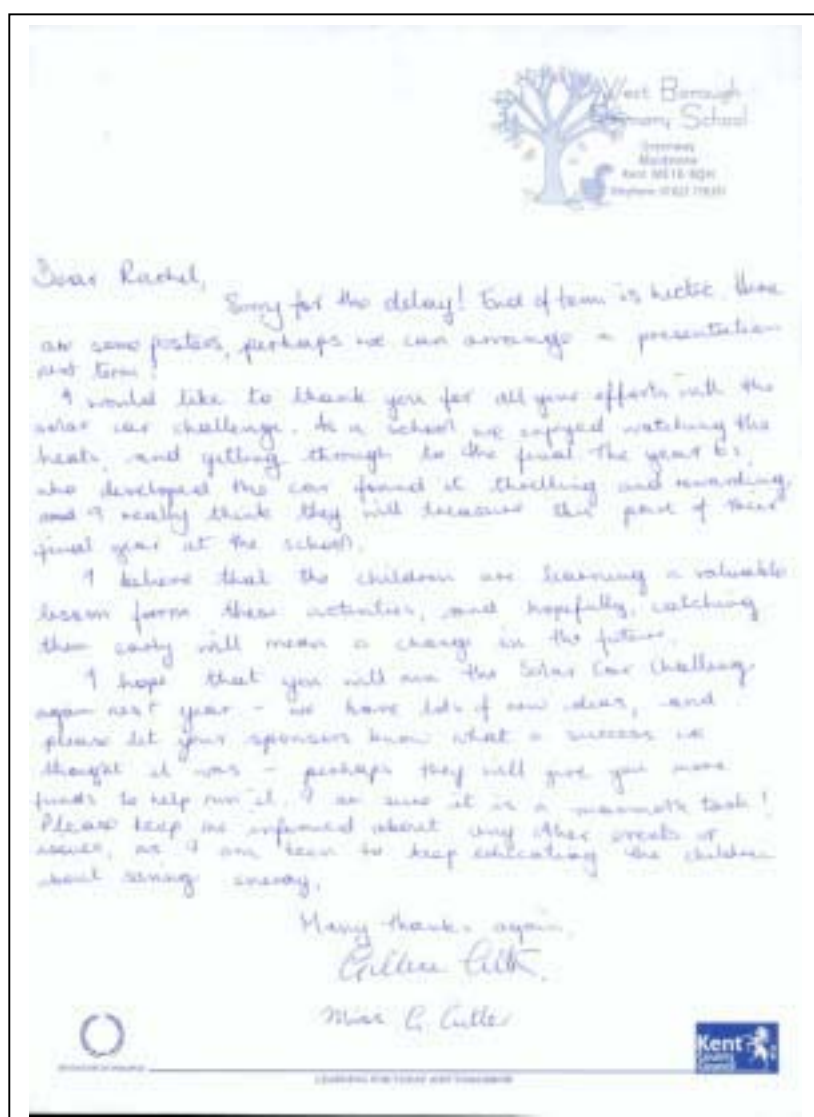 West Borough
Primary School
Greenway
Maidstone
Kent ME16
Telephone: 01622
Dear Rachel,
Sorry for the delay! End of term is hectic. Here
are some posters, perhaps we can arrange a presentation
next term!
I would like to thank you for all your efforts with the
solar car challenge. As a school we enjoyed watching the
heats, and getting through to the final. The year 6s,
who developed the car found it thrilling and rewarding,
and I really think they will treasure this part of their
final year at the school.
I believe that the children are learning a valuable
lesson form these activities, and hopefully, catching
them early will mean a change in the future.
I hope that you will run the Solar Car Challenge
again next year - we have lots of new ideas, and
please let your sponsors know what a success we
thought it was - perhaps they will give you more
funds to help run it. I am sure it is a mammoth task!
Please keep me informed about any other events or
issues, as I am keen to keep educating the children
about saving energy.
Many thanks again,
Miss G. Cutler
LEARNING FOR TODAY AND TOMORROW
Kent
County
Council